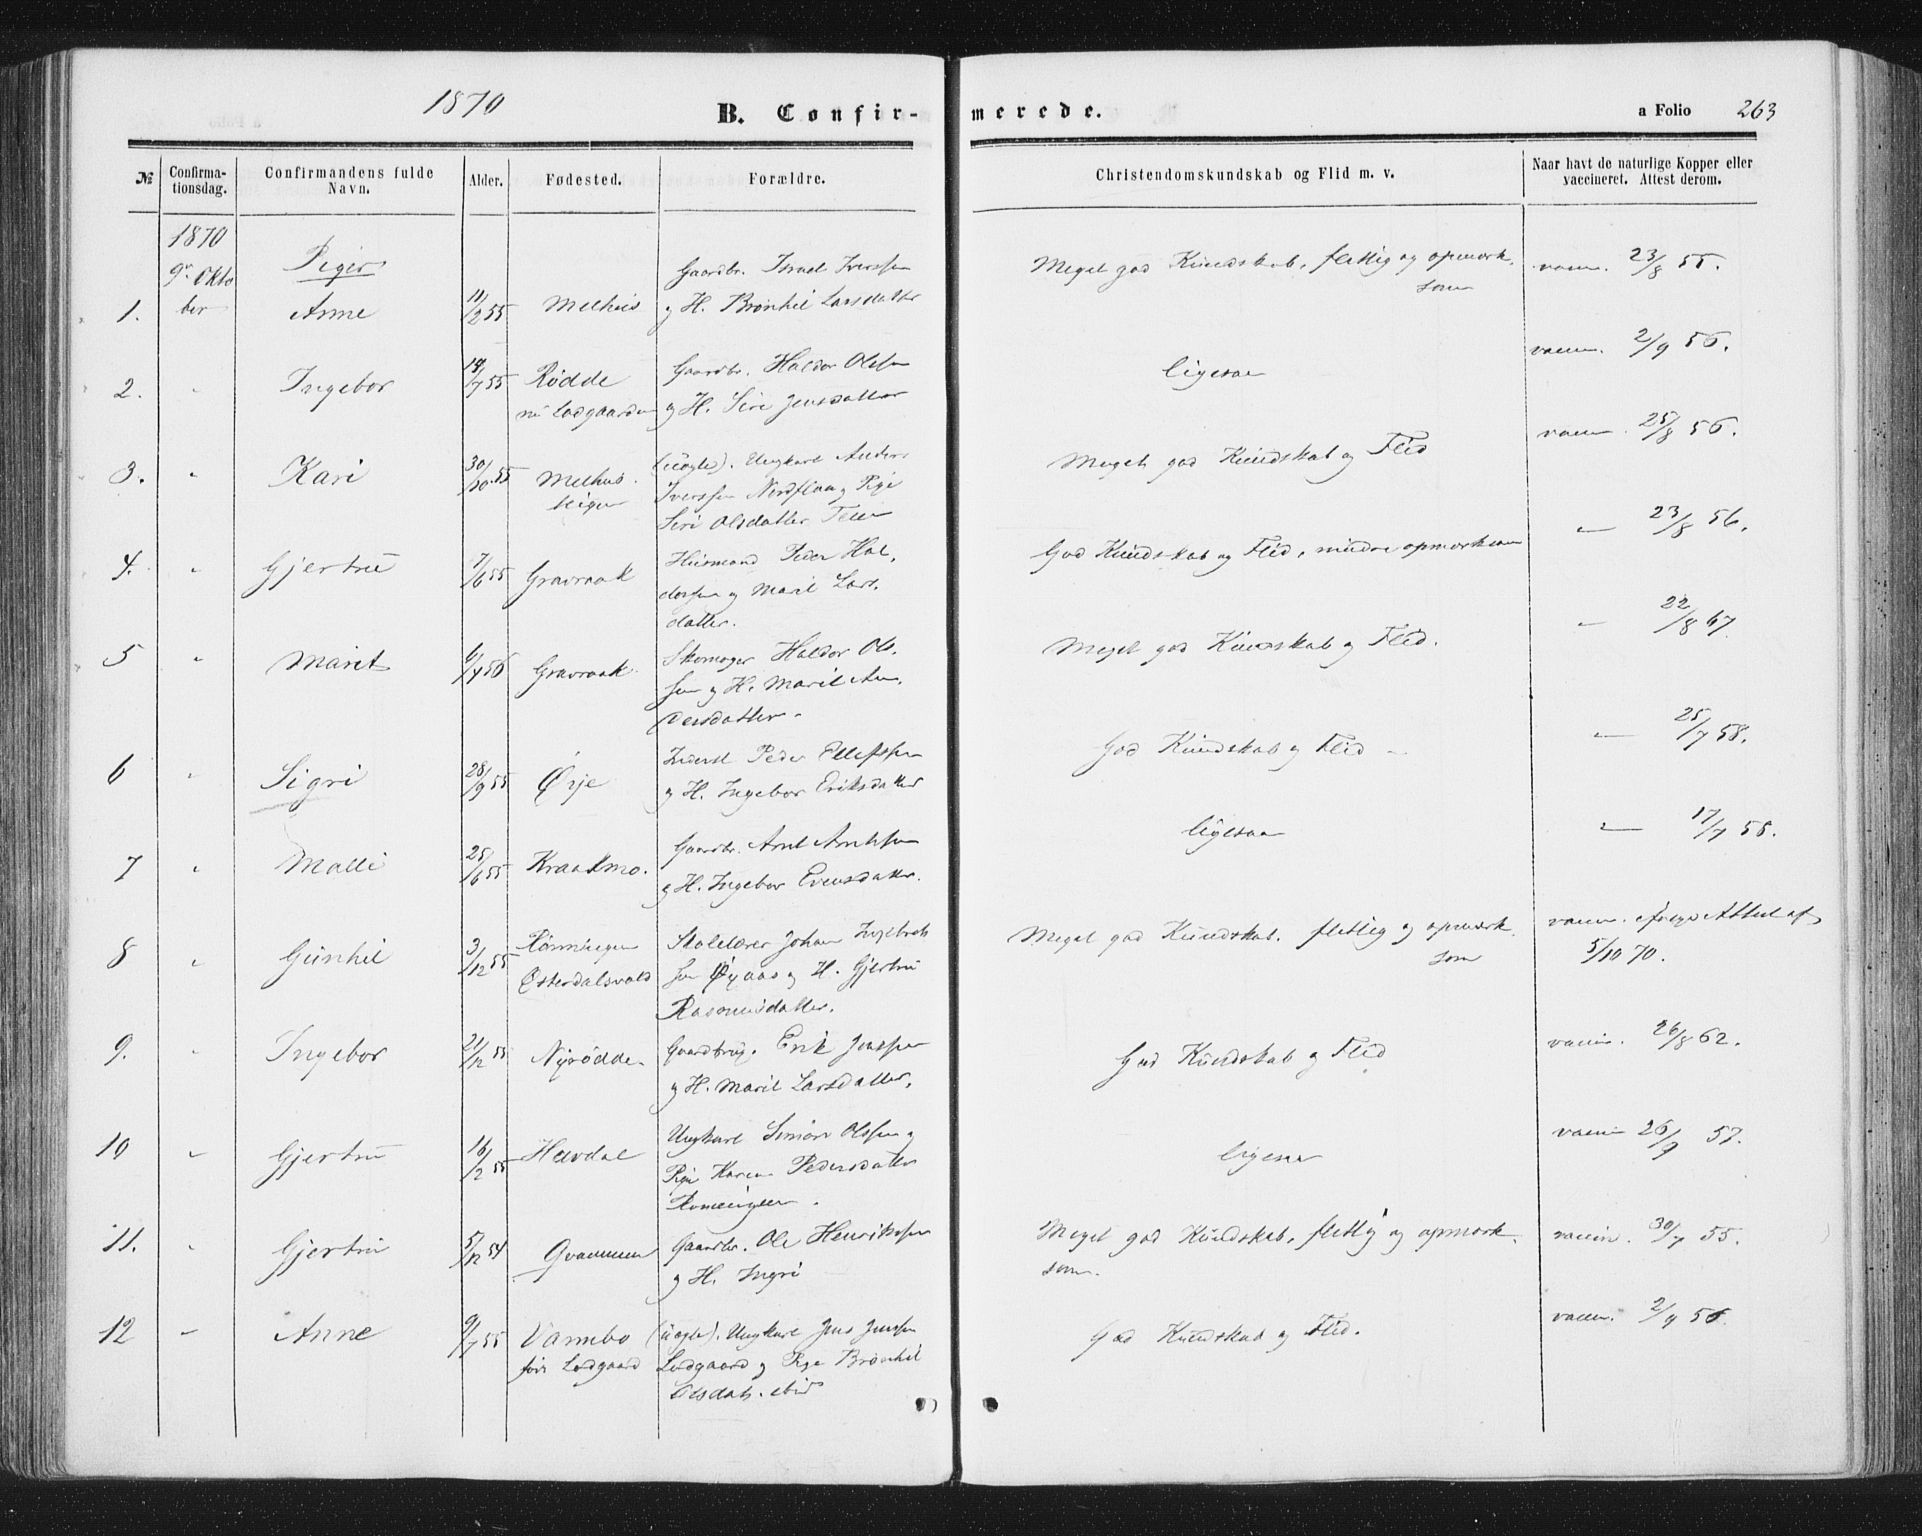 1870 B. Confirmerede. a Folio 263
№ Confirmationsdag. Confirmandens fulde Navn. Alder. Fødested. Forældre. Christendomskundskab og Flid m. v. Naar havt de naturlige Kopper eller vaccineret. Attest derom.
1870
9de Okto
ber
Piger
1. Anne 11/2 55 Melhus Gaardbr. Israel Iverssen
og H. Brønhil Larsdatter
Meget god Kundskab, flittig og opmærk
som
vaccin. 23/8 55.
2. " Ingebor 18/7 55 Rødde Gaardbr. Haldor Olssen
nu Lodgaarden og H. Siri Jensdatter
ligesaa
vaccin. 2/9 56.
3. " Kari 30/10 55 Melhus (uægte). Ungkarl Anders
Iverssen Nordflaa og Pige
Siri Olsdatter
Meget god Kundskab og Flid
vaccin. 25/8 56.
4. " Gjertru 7/6 55 Gravraak Husmand Peder Hal
dorssen og Marit Lars
datter.
God Kundskab og Flid, mindre opmærksom
" 23/8 56.
5 " Marit 6/4 56 Gravraak Skomager Haldor Ols
sen og H. Marit An
dersdatter.
Meget god Kundskab og Flid.
" 22/8 67.
6 " Sigri 28/9 55 Øye Inderst Peder Ellefssen
og H. Ingebor Eriksdatter
God Kundskab og Flid
" 25/7 58.
7 " Malli 25/6 55 Kraakmo. Gaardbr. Arnt Arntssen
og H. Ingebor Evensdatter.
ligesaa
" 17/7 56.
8 " Gunhil 3/12 55 Rømningen Skolelærer Johan Ingebrigts
Østerdalsvold sen Øyaas og H. Gjertru
Rasmusdatter.
Meget god Kundskab, flittig og opmærk
som
vaccin. ifølge Attest af
5/10 70.
9. " Ingebor 21/12 55 Nyrødde Gaardbrug. Erik Jonssen
og H. Marit Larsdatter.
God Kundskab og Flid
vaccin. 26/8 62.
10 " Gjertru 16/2 55 Hevdal Ungkarl Simon Olssen og
Pige Karen Pedersdatter
ligesaa
vaccin 26/9 57.
11. Gjertru 5/12 54 Qvammen Gaardbr. Ole Henrikssen
og H. Ingri
Meget god Kundskab, flittig og opmærk
som.
vaccin. 30/7 55.
12 " Anne 9/7 55 Vammbo (uægte). Ungkarl Jens Jenssen
før Lodgaard Lodgaard og Pige Brønhil
Olsdat. ibid
God Kundskab og Flid.
vaccin. 2/9 56.